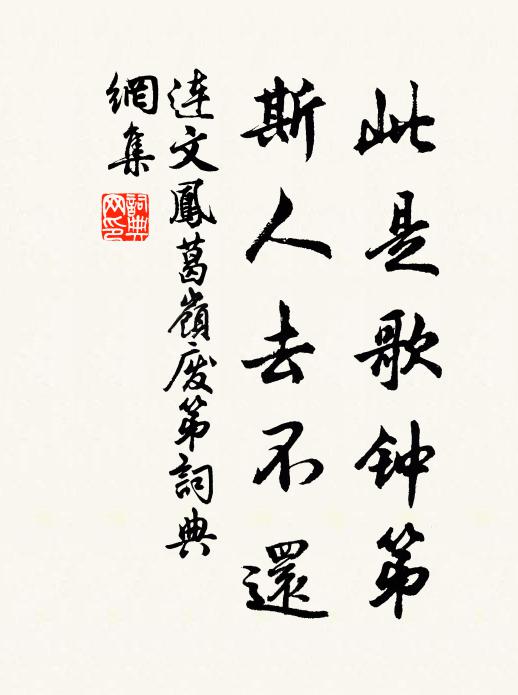 此是歌钟第
斯人去不還
连文鳳葛嶺废第詞典
網集
詞典网印